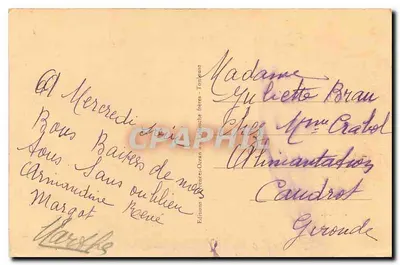 A Mercredi soir
Bons Baisers de nous
tous sans oublier
Armandine René
Margot
Marthe
Madame
Juliette Brau
chez Mme Crabot
Alimantation
Caudrot
Gironde
CPHRTIL